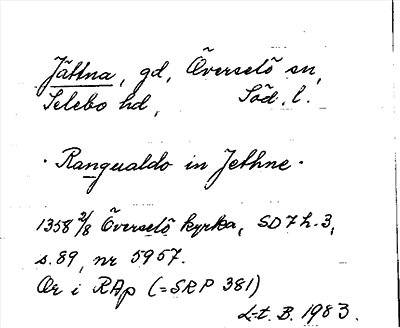 Jättna, gd, Överselö sn,
Selebo hd, Söd. l.
· Rangualdo in Jethne ·
1358 2/8 Överselö kyrka, SD 7 h. 3,
s. 89, nr 5957.
Or i RAp (= SRP 381)
L-t. B. 1983.